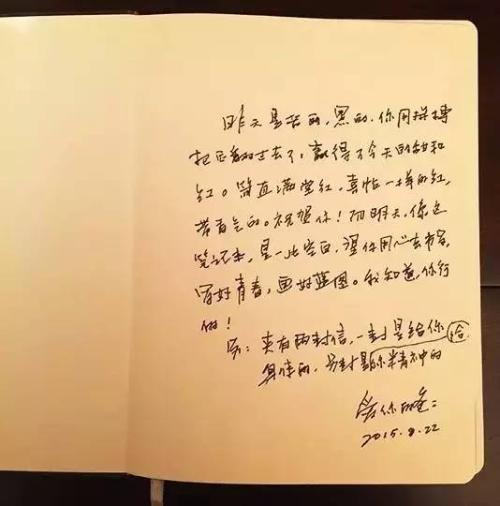 昨天是苦的,黑的,你用拼搏
把它们过去了,赢得了今天的甜和
红。简直满堂红,喜怕一样的红,
带有的。祝贺你!而明天,像这
笔记本,是一片空白,望你用心去书写,
写好青春,画好蓝图。我知道,你行
的!
另:夹有两封信,一封是给你
具体的,另封是给你精神的
爱你的爸:
2015.8.22